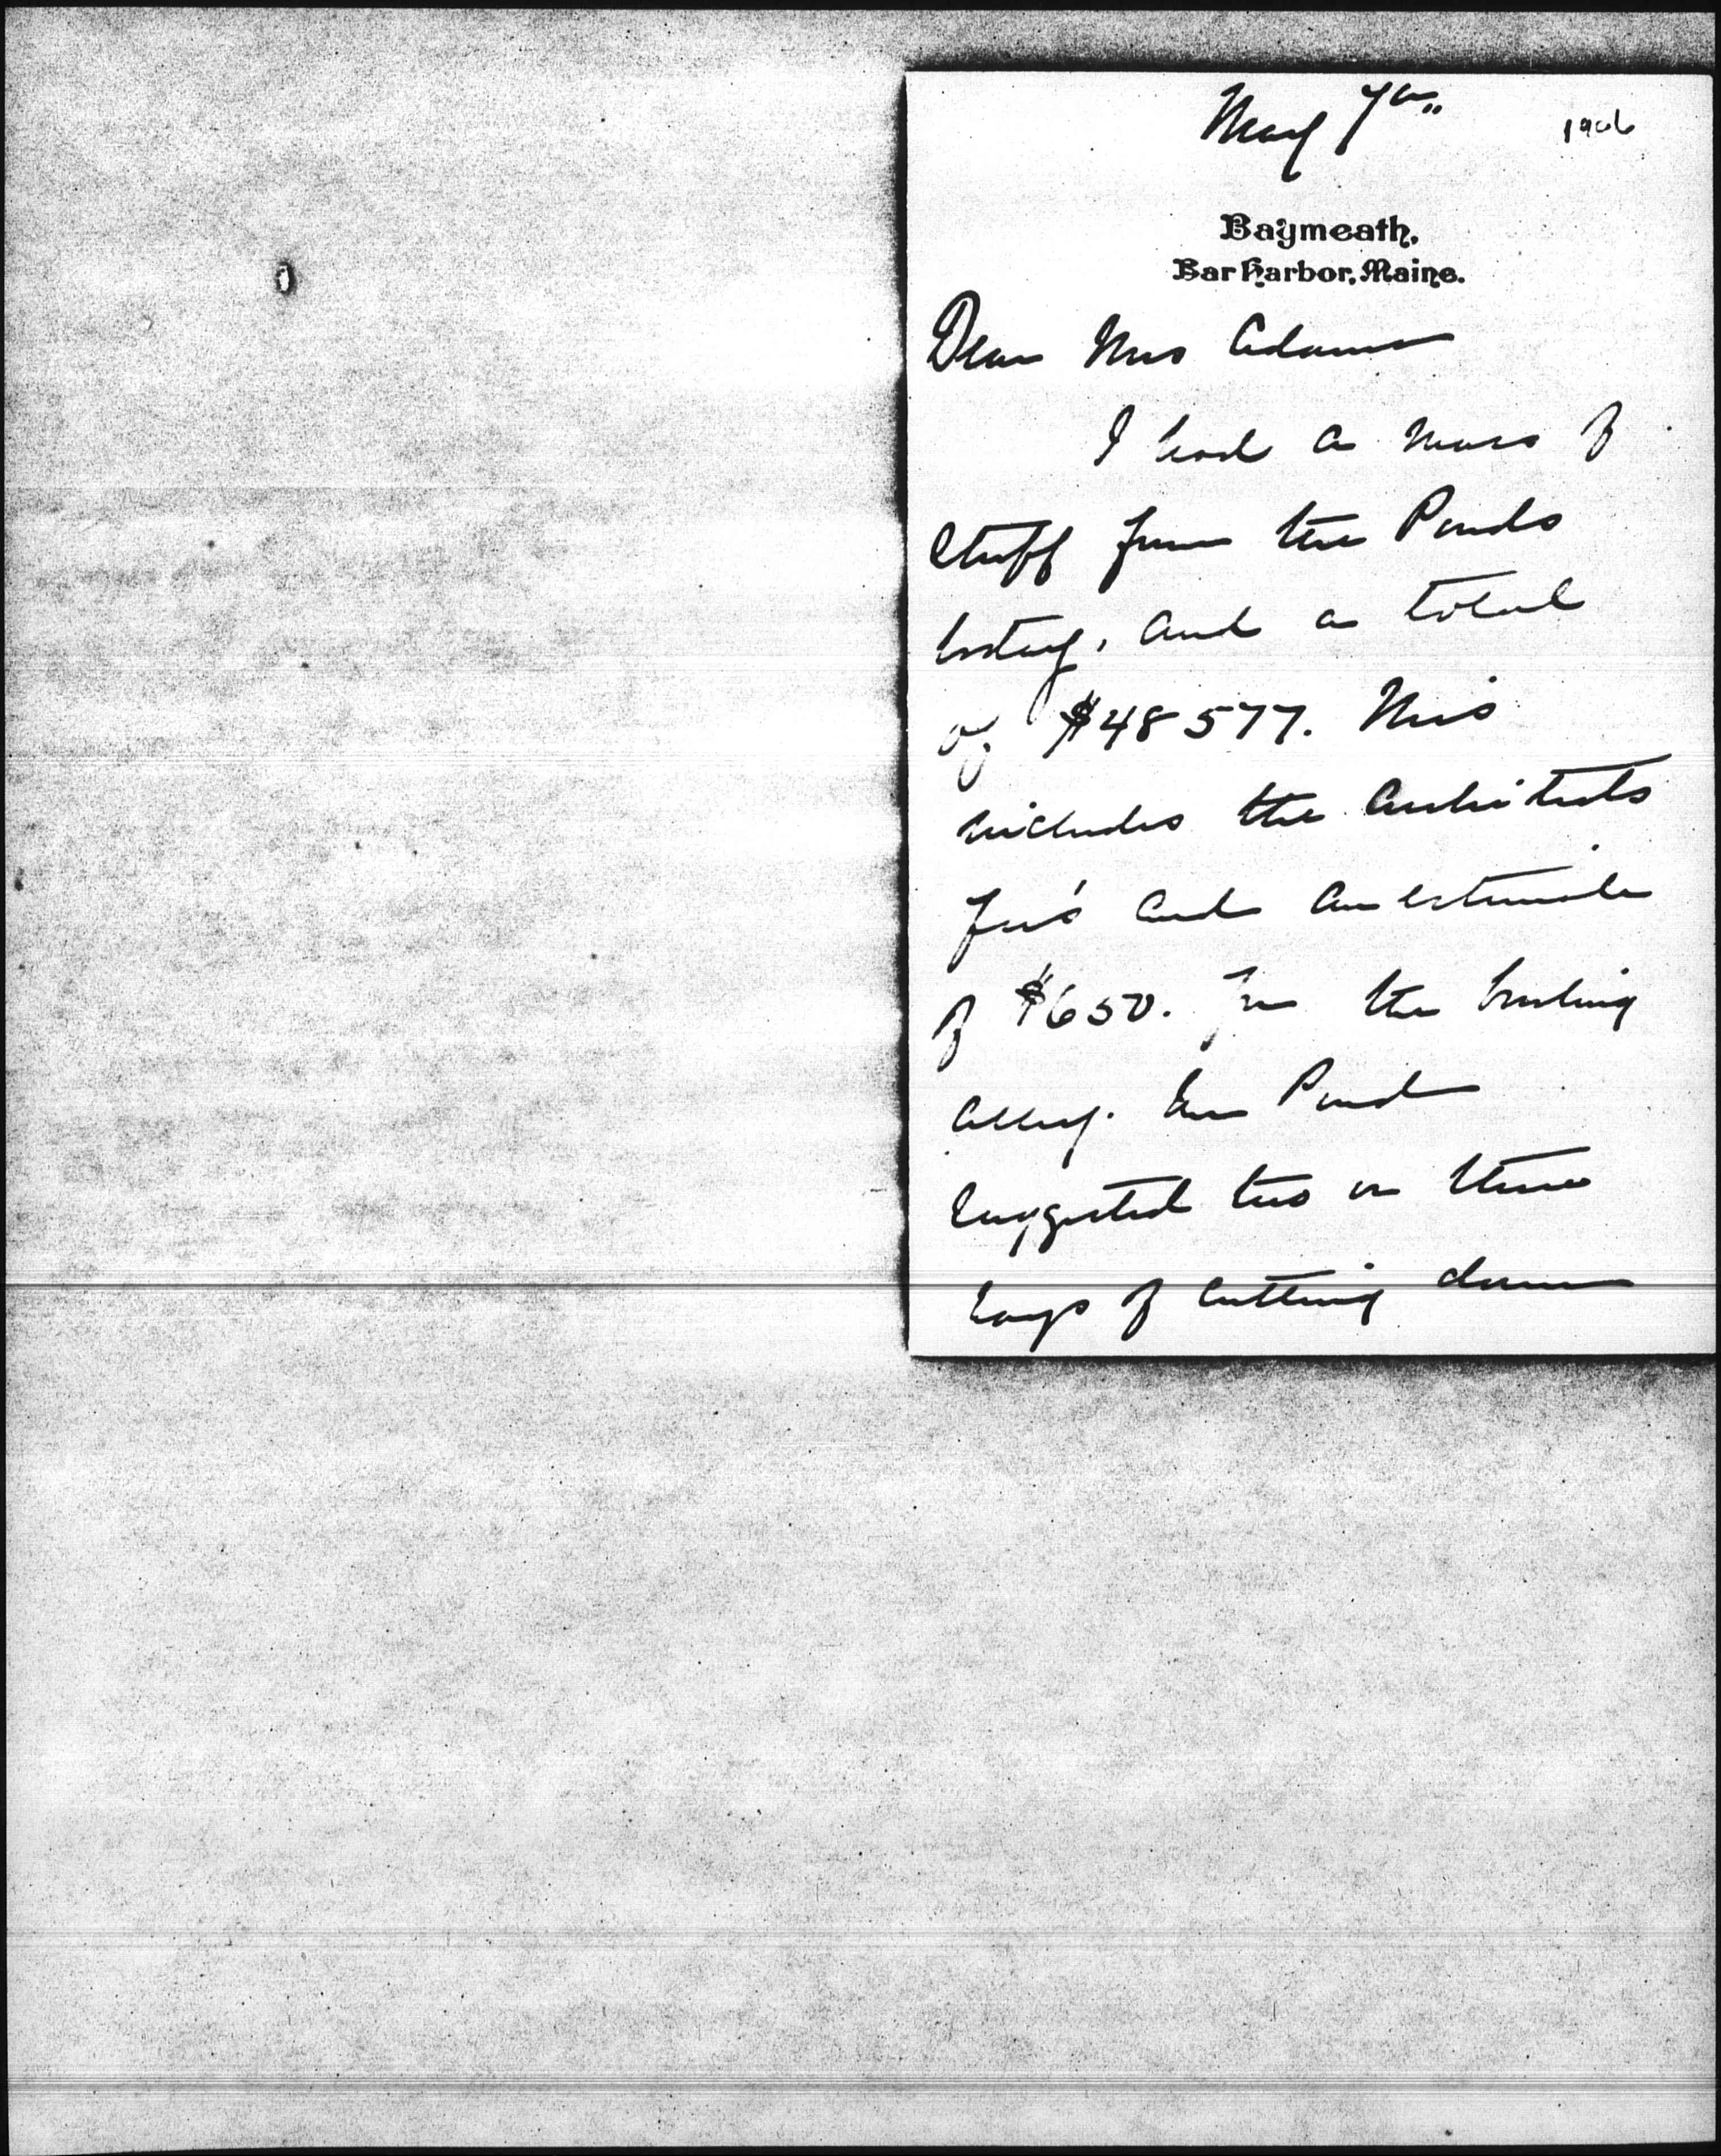 May 7th
1906
Baymeath,
Bar Harbor, Maine.
Dear Mrs Adams
I had a mass of
stuff from the Ponds
today, and a total
of $48577. This
includes the Architects
fee's and an estimate
of $650. for the bowling
alley. Irv Pond
suggested two or three
ways of cutting down